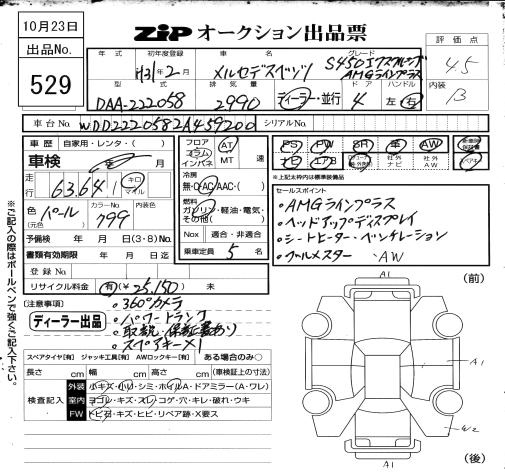 10月23日
出品No.
529
ZIP オークション出品票
年式 初年度登録 車名 グレード
H31年2月 メルセデスベンツ S450エクスクルーシブ
AMGラインプラス
型式 排気量 ドア ハンドル
DAA-222058 2990 ディーラー・並行 4 左 右
評価点
4.5
内装
B
車台No. WDD2220582A459200 シリアルNo.
車歴 自家用・レンタ・( )
車検 年 月
走行 63,641 キロ マイル
色 (元色) パール カラーNo. 799 内装色
予備検 年 月 日(3・8)No.
書類有効期限 年 月 日迄
登録No.
リサイクル料金 有(¥25,150) 未
フロア コラム インパネ AT MT 速
冷房
無・AC・AAC・( )
燃料
ガソリン・軽油・電気・
その他( )
Nox 適合・非適合
乗車定員 5名
PS PW SR 革 AW
ナビ エアB 社外ナビ 社外AW
*上記太枠内は標準装備品
セールスポイント
・AMGラインプラス
・ヘッドアップディスプレイ
・シートヒーター・ベンチレーション
・ブルメスター ・AW
※ご記入の際はボールペンで強くご記入下さい。
(注意事項)
ディーラー出品
・360°カメラ
・パワートランク
・取説・保証書あり
・スペアキー×1
スペアタイヤ[有] ジャッキ工具[有] AWロックキー[有] ある場合のみ○
長さ cm 幅 cm 高さ cm (車検証上の寸法)
検査記入
外装 小キズ・小凹・シミ・ホイルA・ドアミラー(A・ワレ)
室内 ヨゴレ・キズ・スレ・コゲ・穴・キレ・破れ・ウキ
FW トビ石・キズ・ヒビ・リペア跡・X要ス
A1
(前)
A1
W2
A1
(後)